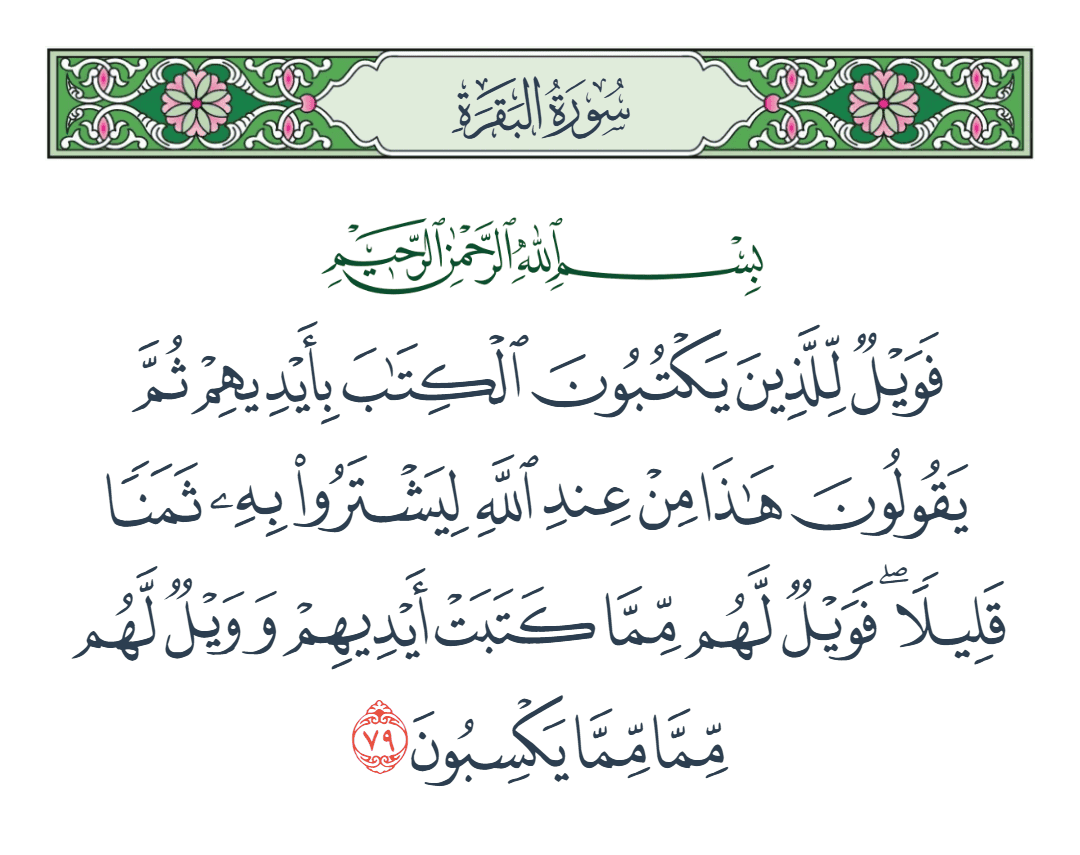 سُورَةُ البَقَرَةِ
بِسْمِ ٱللَّهِ ٱلرَّحْمَٰنِ ٱلرَّحِيمِ
فَوَيْلٌ لِّلَّذِينَ يَكْتُبُونَ ٱلْكِتَٰبَ بِأَيْدِيهِمْ ثُمَّ
يَقُولُونَ هَٰذَا مِنْ عِندِ ٱللَّهِ لِيَشْتَرُوا۟ بِهِۦ ثَمَنًا
قَلِيلًا ۖ فَوَيْلٌ لَّهُم مِّمَّا كَتَبَتْ أَيْدِيهِمْ وَ وَيْلٌ لَّهُم
مِّمَّا مِّمَّا يَكْسِبُونَ ٧٩